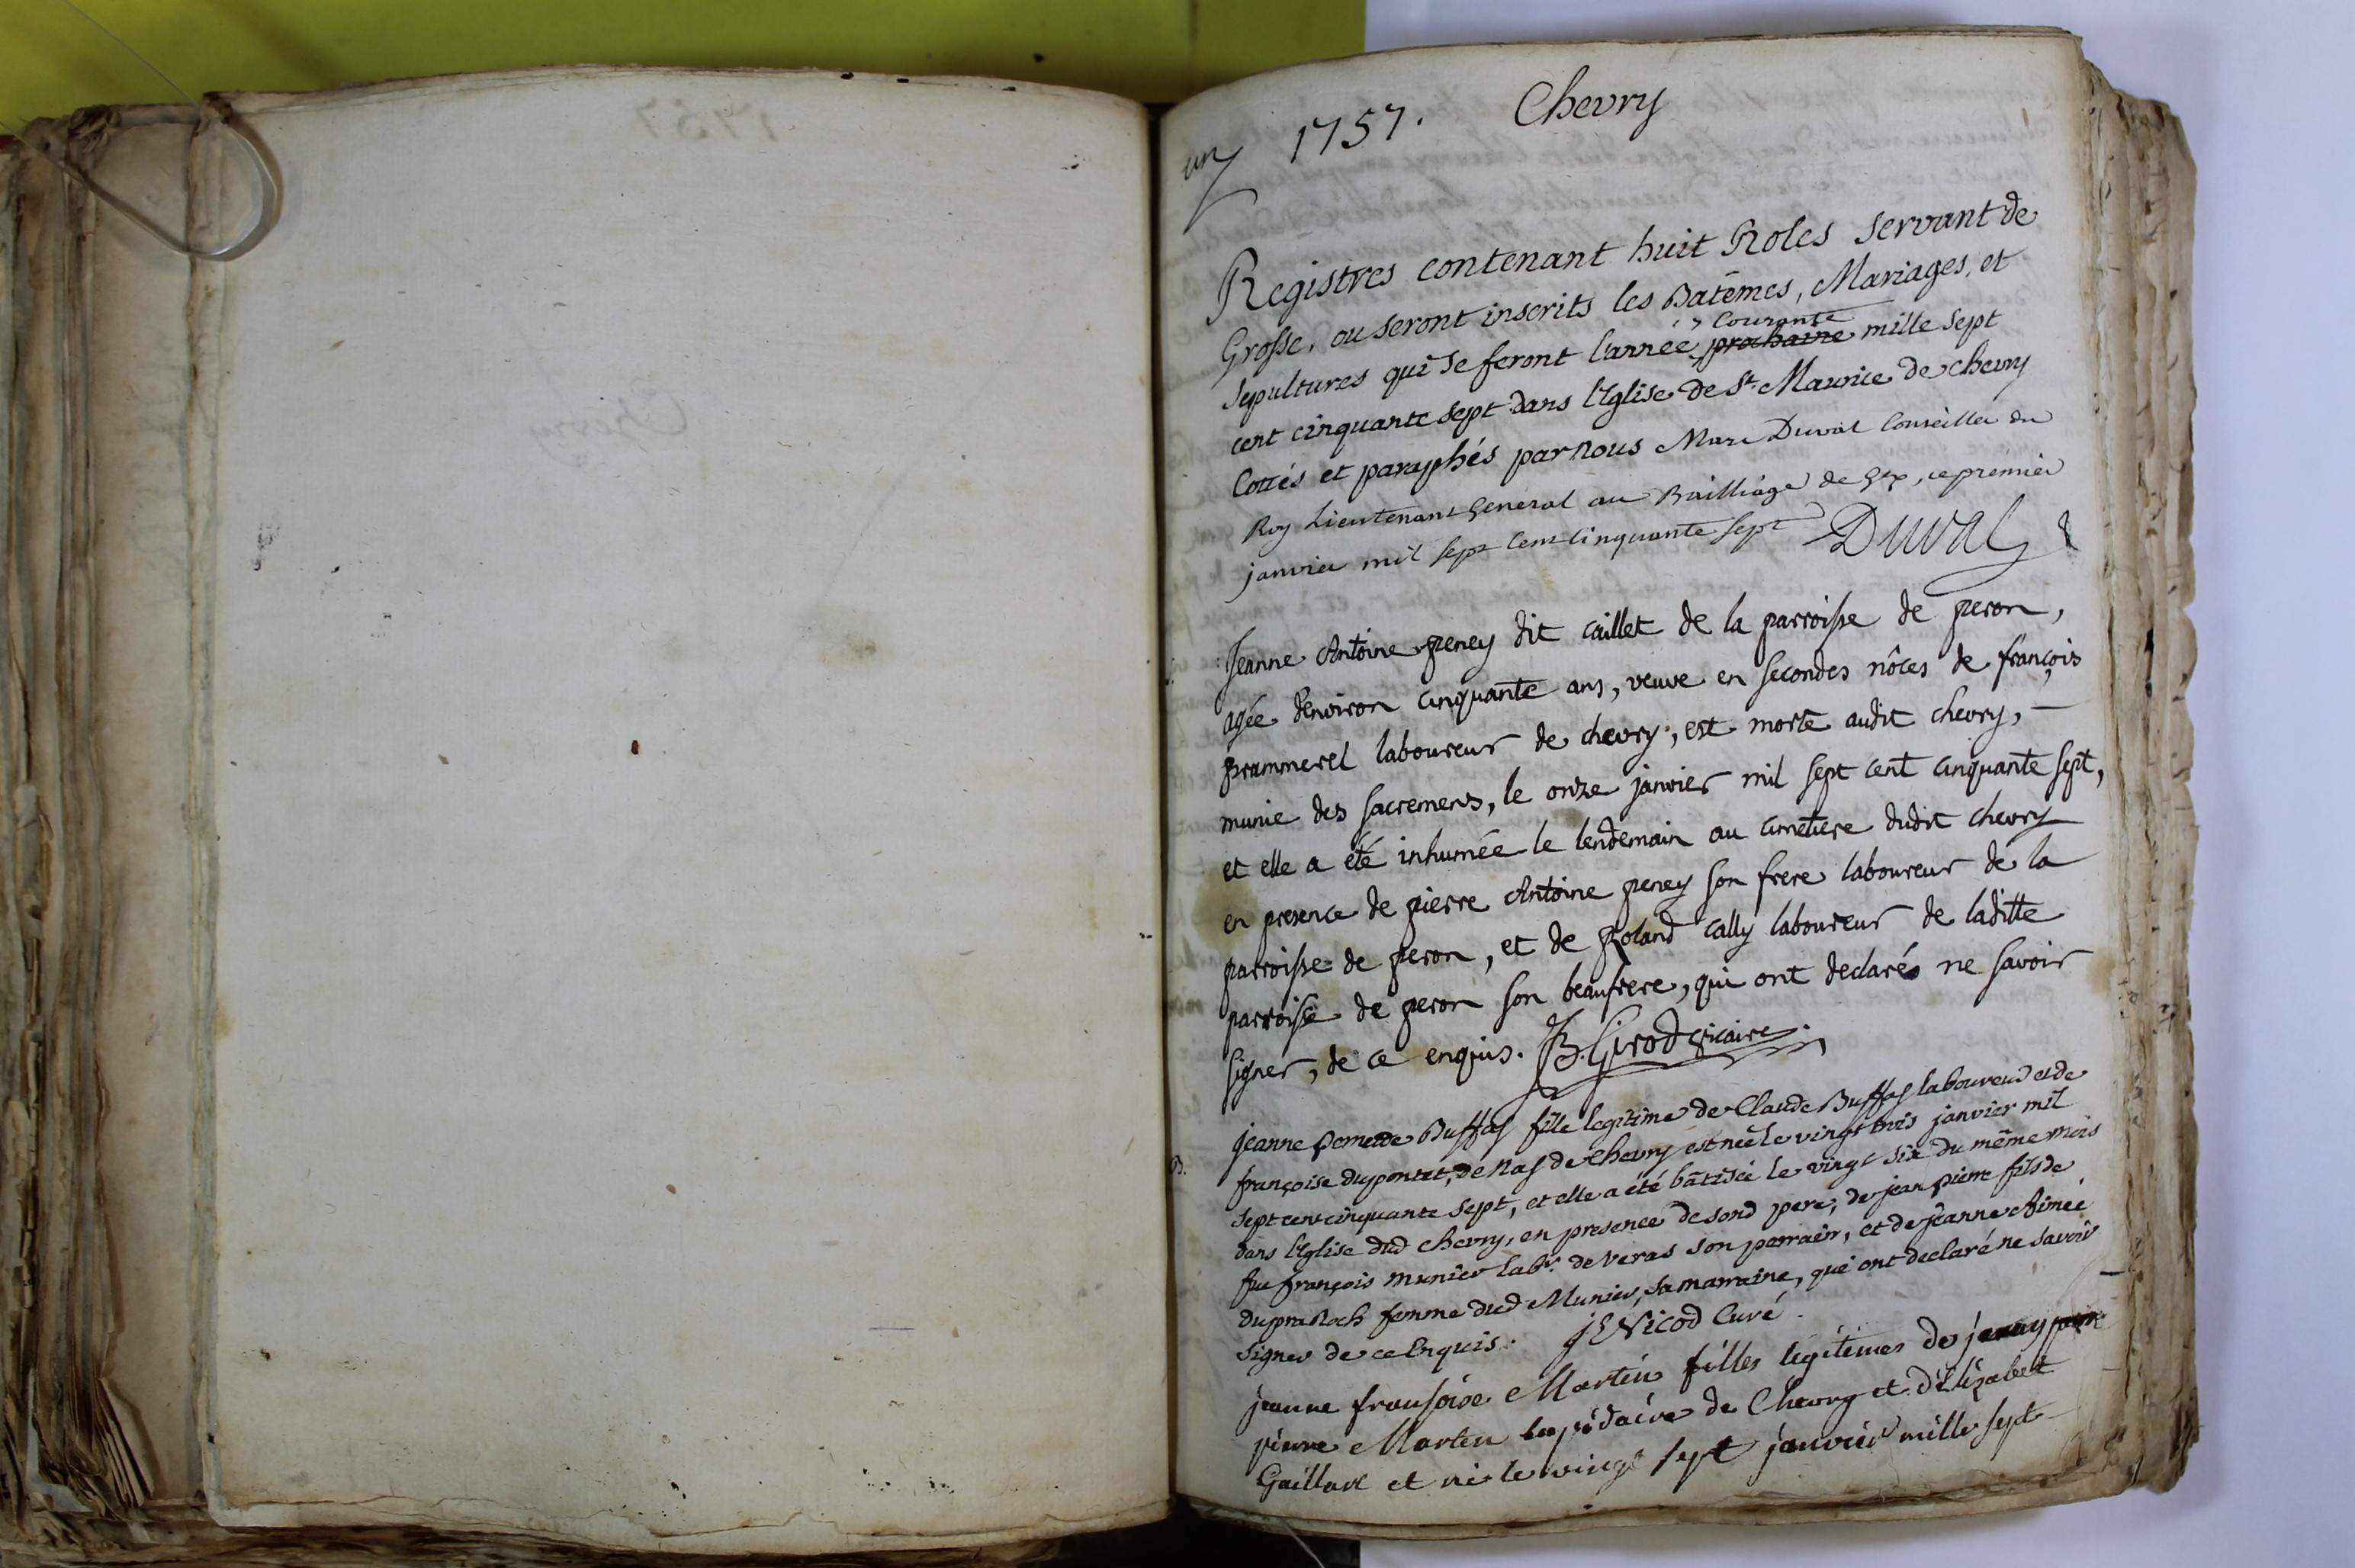 un 1757. Chevry
Registres contenant huit Roles servant de
Grosse, ou seront inscrits les Batêmes, Mariages, et
Sepultures qui se feront l'année prochaine courante mille sept
cent cinquante sept dans l'Eglise de St. Maurice de chevry
Cottés et paraphés par nous Marc Duval Conseiller du
Roy Lieutenant General au Bailliage de Gex, ce premier
janvier mil sept cent cinquante sept DUVAL
S.
Jeanne Antoine peney dit caillet de la parroisse de peron,
agée d'environ cinquante ans, veuve en secondes nôces de françois
prammerel laboureur de chevry, est morte audit chevry, –
munie des sacremens, le onze janvier mil sept cent cinquante sept,
et elle a été inhumée le lendemain au cimetiere dudit chevry
en presence de pierre Antoine peney son frere laboureur de la
parroisse de peron, et de Roland cally laboureur de laditte
parroisse de peron son beaufrere, qui ont declarés ne savoir
signer, de ce enquis. JB. Girod vicaire.
B.
jeanne pernete Buffas fille legitime de Claude Buffas laboureur et de
françoise dupontet, de Nas de Chevry est née le vingt trois janvier mil
sept cent cinquante sept, et elle a été bâtisée le vingt six du même mois
dans l'Eglise dud chevry, en presence de sond pere, de jean pierre fils de
feu françois munier labr. de veras son parrain, et de jeanne Aimée
dupraRoch femme dud Munier, sa marraine, qui ont declaré ne savoir
signer de ce Enquis. JE Nicod Curé.
jeanne fransoise Martin filles légitimes de
pierre Martin lapidaire de Chevry et d'Elizabet
Gaillard et né le vingt sept janvier mille sept